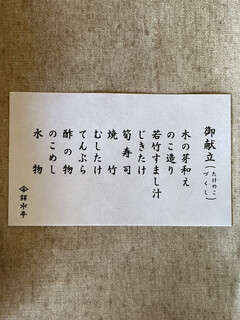 御献立(たけのこづくし)
木の芽和え
のこ造り
若竹すまし汁
じきたけ
筍寿司
焼竹
むしたけ
てんぷら
酢の物
のこめし
水物
錦水亭